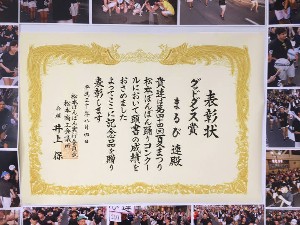 表彰状
グッドダンス賞
まるび 連殿
貴連は第四十四回夏まつり
松本ぼんぼん踊りコンクー
ルにおいて頭書の成績を
おさめました
よってここに記念品を贈り
表彰します
平成三十年八月四日
松本ぼんぼん実行委員会
松本商工会議所
会頭 井上 保